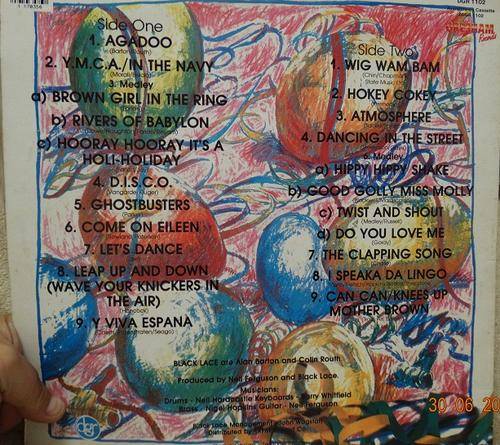 1 178356
DGR 1102
Cassette
Records
Side One
1. AGADOO
2. Y.M.C.A./IN THE NAVY
3. Medley
a) BROWN GIRL IN THE RING
b) RIVERS OF BABYLON
c) HOORAY HOORAY IT'S A
HOLI-HOLIDAY
4. D.I.S.C.O.
5. GHOSTBUSTERS
6. COME ON EILEEN
7. LET'S DANCE
8. LEAP UP AND DOWN
(WAVE YOUR KNICKERS IN
THE AIR)
9. Y VIVA ESPANA
Side Two
1. WIG WAM BAM
(Chin/Chapman)
2. HOKEY COKEY
3. ATMOSPHERE
4. DANCING IN THE STREET
Medley
a) HIPPY HIPPY SHAKE
b) GOOD GOLLY MISS MOLLY
c) TWIST AND SHOUT
(Medley/Russell)
d) DO YOU LOVE ME
(Gordy)
7. THE CLAPPING SONG
8. I SPEAKA DA LINGO
9. CAN CAN/KNEES UP
MOTHER BROWN
BLACK LACE are Alan Barton and Colin Routh
Produced by Neil Ferguson and Black Lace.
Musicians:
Drums - Neil Hardcastle Keyboards - Terry Whitfield
Brass - Nigel Hopkins Guitar - Neil Ferguson
Black Lace Management - John Wagstaff
Distributed by
30 06 20